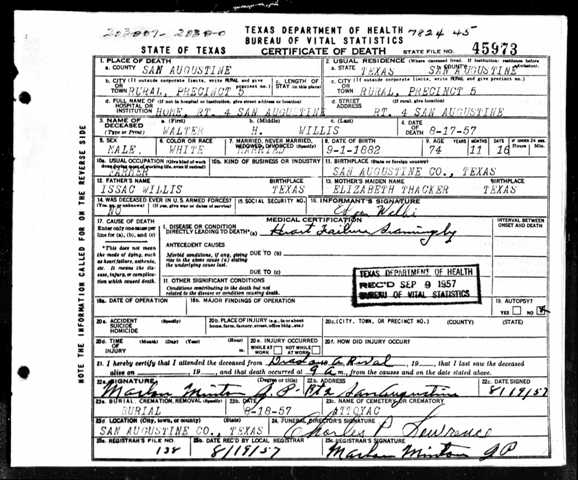 203007-20380
TEXAS DEPARTMENT OF HEALTH
7824 45
BUREAU OF VITAL STATISTICS
STATE OF TEXAS
CERTIFICATE OF DEATH
STATE FILE NO. 45973
1. PLACE OF DEATH
2. USUAL RESIDENCE (Where deceased lived. If institution: residence before admission)
a. COUNTY SAN AUGUSTINE
a. STATE TEXAS b. COUNTY SAN AUGUSTINE
b. CITY (If outside corporate limits, write RURAL and give precinct no.) OR TOWN RURAL, PRECINCT 5
c. LENGTH OF STAY (in this place)
c. CITY (If outside corporate limits, write RURAL and give precinct no.) OR TOWN RURAL, PRECINCT 5
d. FULL NAME OF (If not in hospital or institution, give street address or location) HOSPITAL OR INSTITUTION HOME, RT. 4 SAN AUGUSTINE
d. STREET ADDRESS (If rural, give location) RT. 4 SAN AUGUSTINE
3. NAME OF DECEASED (Type or Print)
a. (First) WALTER
b. (Middle) H.
c. (Last) WILLIS
4. DATE OF DEATH 8-17-57
5. SEX MALE
6. COLOR OR RACE WHITE
7. MARRIED, NEVER MARRIED, WIDOWED, DIVORCED (Specify) MARRIED
8. DATE OF BIRTH 9-1-1882
9. AGE YEARS 74 MONTHS 11 DAYS 16 IF UNDER 24 HRS. Hours Min.
10a. USUAL OCCUPATION (Give kind of work done during most of working life, even if retired) FARMER
10b. KIND OF BUSINESS OR INDUSTRY
11. BIRTHPLACE (State or foreign country) SAN AUGUSTINE CO., TEXAS
12. FATHER'S NAME ISSAC WILLIS TEXAS
13. MOTHER'S MAIDEN NAME ELIZABETH THACKER TEXAS
14. WAS DECEASED EVER IN U.S. ARMED FORCES? (Yes, no or unknown) (If yes, give war or dates of service) NO
15. SOCIAL SECURITY NO.
16. INFORMANT'S SIGNATURE
MEDICAL CERTIFICATION
17. CAUSE OF DEATH
Enter only one cause per line for (a), (b), and (c)
*This does not mean the mode of dying, such as heart failure, asthenia, etc. It means the disease, injury, or complication which caused death.
I. DISEASE OR CONDITION DIRECTLY LEADING TO DEATH* (a) Heart Failure Seamingly
INTERVAL BETWEEN ONSET AND DEATH
ANTECEDENT CAUSES
Morbid conditions, if any, giving rise to the above cause (a) stating the underlying cause last.
DUE TO (b)
DUE TO (c)
II. OTHER SIGNIFICANT CONDITIONS
Conditions contributing to the death but not related to the disease or condition causing death.
TEXAS DEPARTMENT OF HEALTH
REC'D SEP 9 1957
BUREAU OF VITAL STATISTICS
18a. DATE OF OPERATION
18b. MAJOR FINDINGS OF OPERATION
19. AUTOPSY? YES NO
20a. ACCIDENT SUICIDE HOMICIDE (Specify)
20b. PLACE OF INJURY (e.g., in or about home, farm, factory, street, office bldg., etc.)
20c. (CITY, TOWN, OR PRECINCT NO.) (COUNTY) (STATE)
20d. TIME OF INJURY (Month) (Day) (Year) (Hour)
20e. INJURY OCCURRED WHILE AT WORK NOT WHILE AT WORK
20f. HOW DID INJURY OCCUR?
21. I hereby certify that I attended the deceased from Dead on Arrival, 19, that I last saw the deceased
alive on, 19, and that death occurred at 9 a.m., from the causes and on the date stated above.
22a. SIGNATURE Marlon Minton J.P. (Degree or title)
22b. ADDRESS San Augustine
22c. DATE SIGNED 8/19/57
23a. BURIAL, CREMATION, REMOVAL (Specify) BURIAL
23b. DATE 8-18-57
23c. NAME OF CEMETERY OR CREMATORY ATTOYAC
23d. LOCATION (City, town, or county) (State) SAN AUGUSTINE CO., TEXAS
24. FUNERAL DIRECTOR'S SIGNATURE Charles P. Lawrence
25a. REGISTRAR'S FILE NO. 138
25b. DATE REC'D BY LOCAL REGISTRAR 8/19/57
25c. REGISTRAR'S SIGNATURE Marlon Minton J.P.
NOTE THE INFORMATION CALLED FOR ON THE REVERSE SIDE